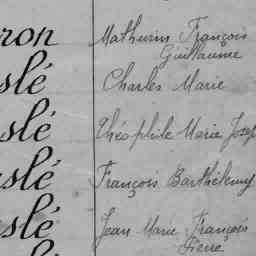 ron Mathurin François
Guillaume
slé Charles Marie
slé Théophile Marie Josep
slé François Barthélemy
slé Jean Marie François
Pierre